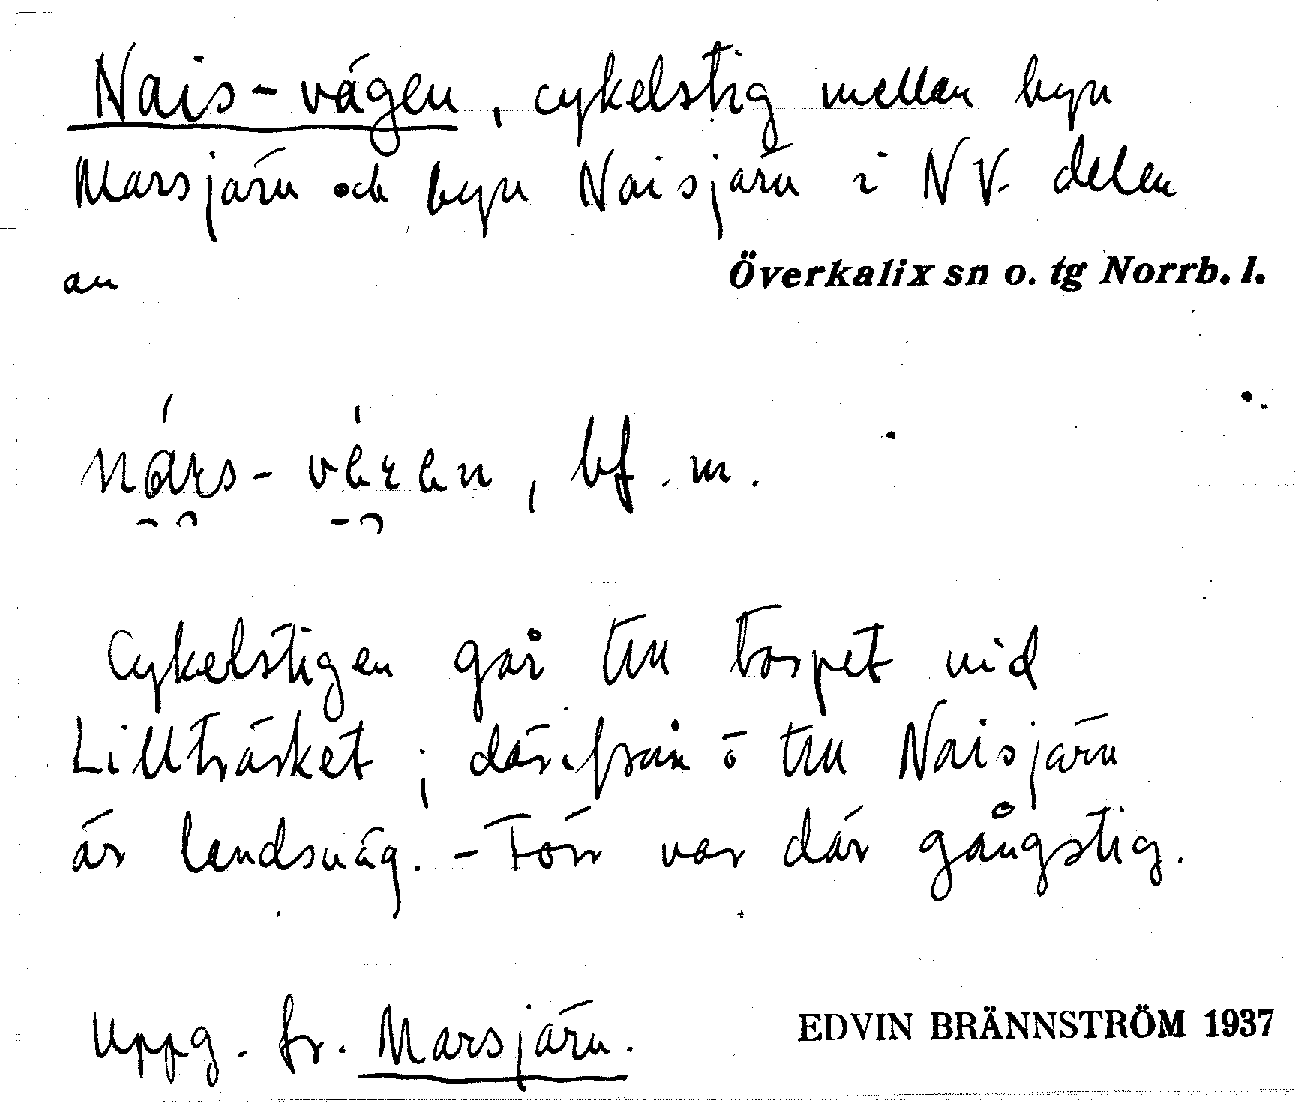 Nais-vägen, cykelstig mellan byn
Marsjärn och byn Naisjärn i NV. delen
av
Överkalix sn o. tg Norrb. l.
bf. m.
Cykelstigen går till torpet vid
Lillträsket; därifrån ö till Naisjärn
är landsväg. - Förr var där gångstig.
Uppg. fr. Marsjärn.
EDVIN BRÄNNSTRÖM 1937